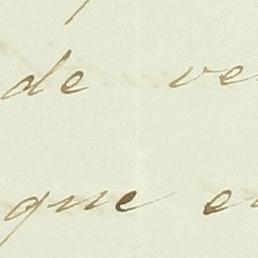 de ve
que e